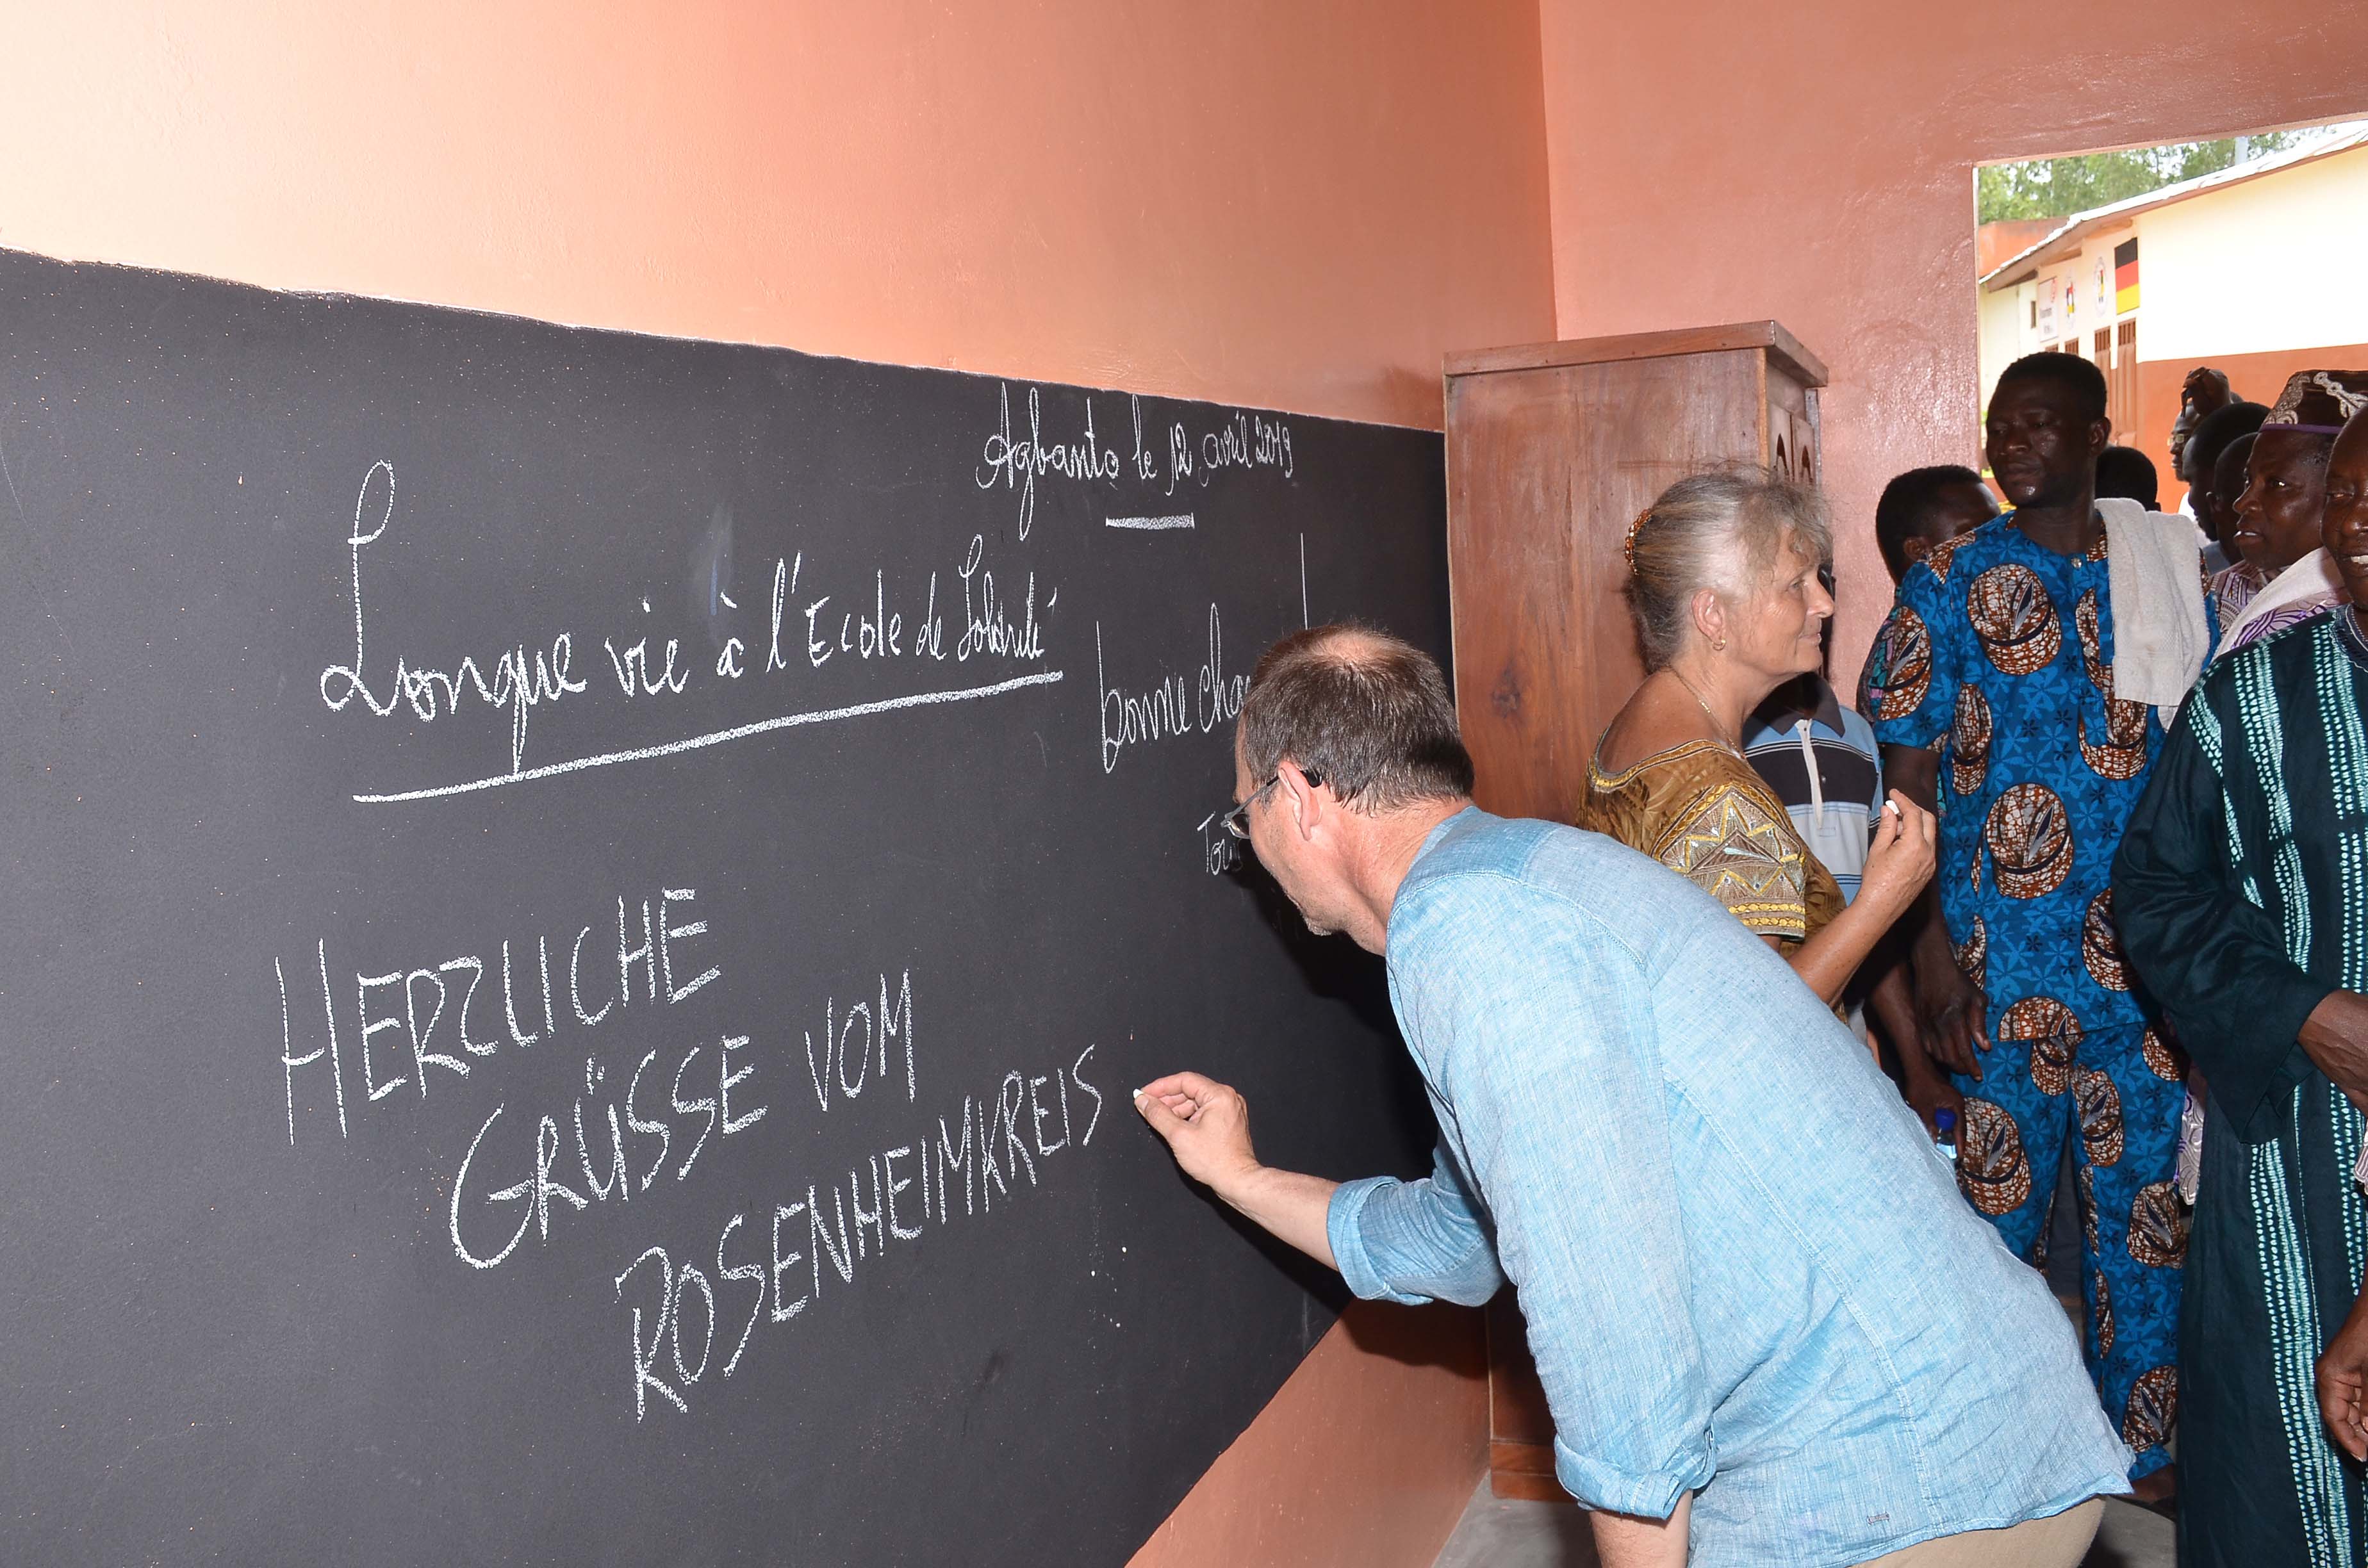 Agbanto le 12 avril 2019
Longue vie à l'Ecole de
bonne
HERZLICHE
GRÜSSE VOM
ROSENHEIMKREIS